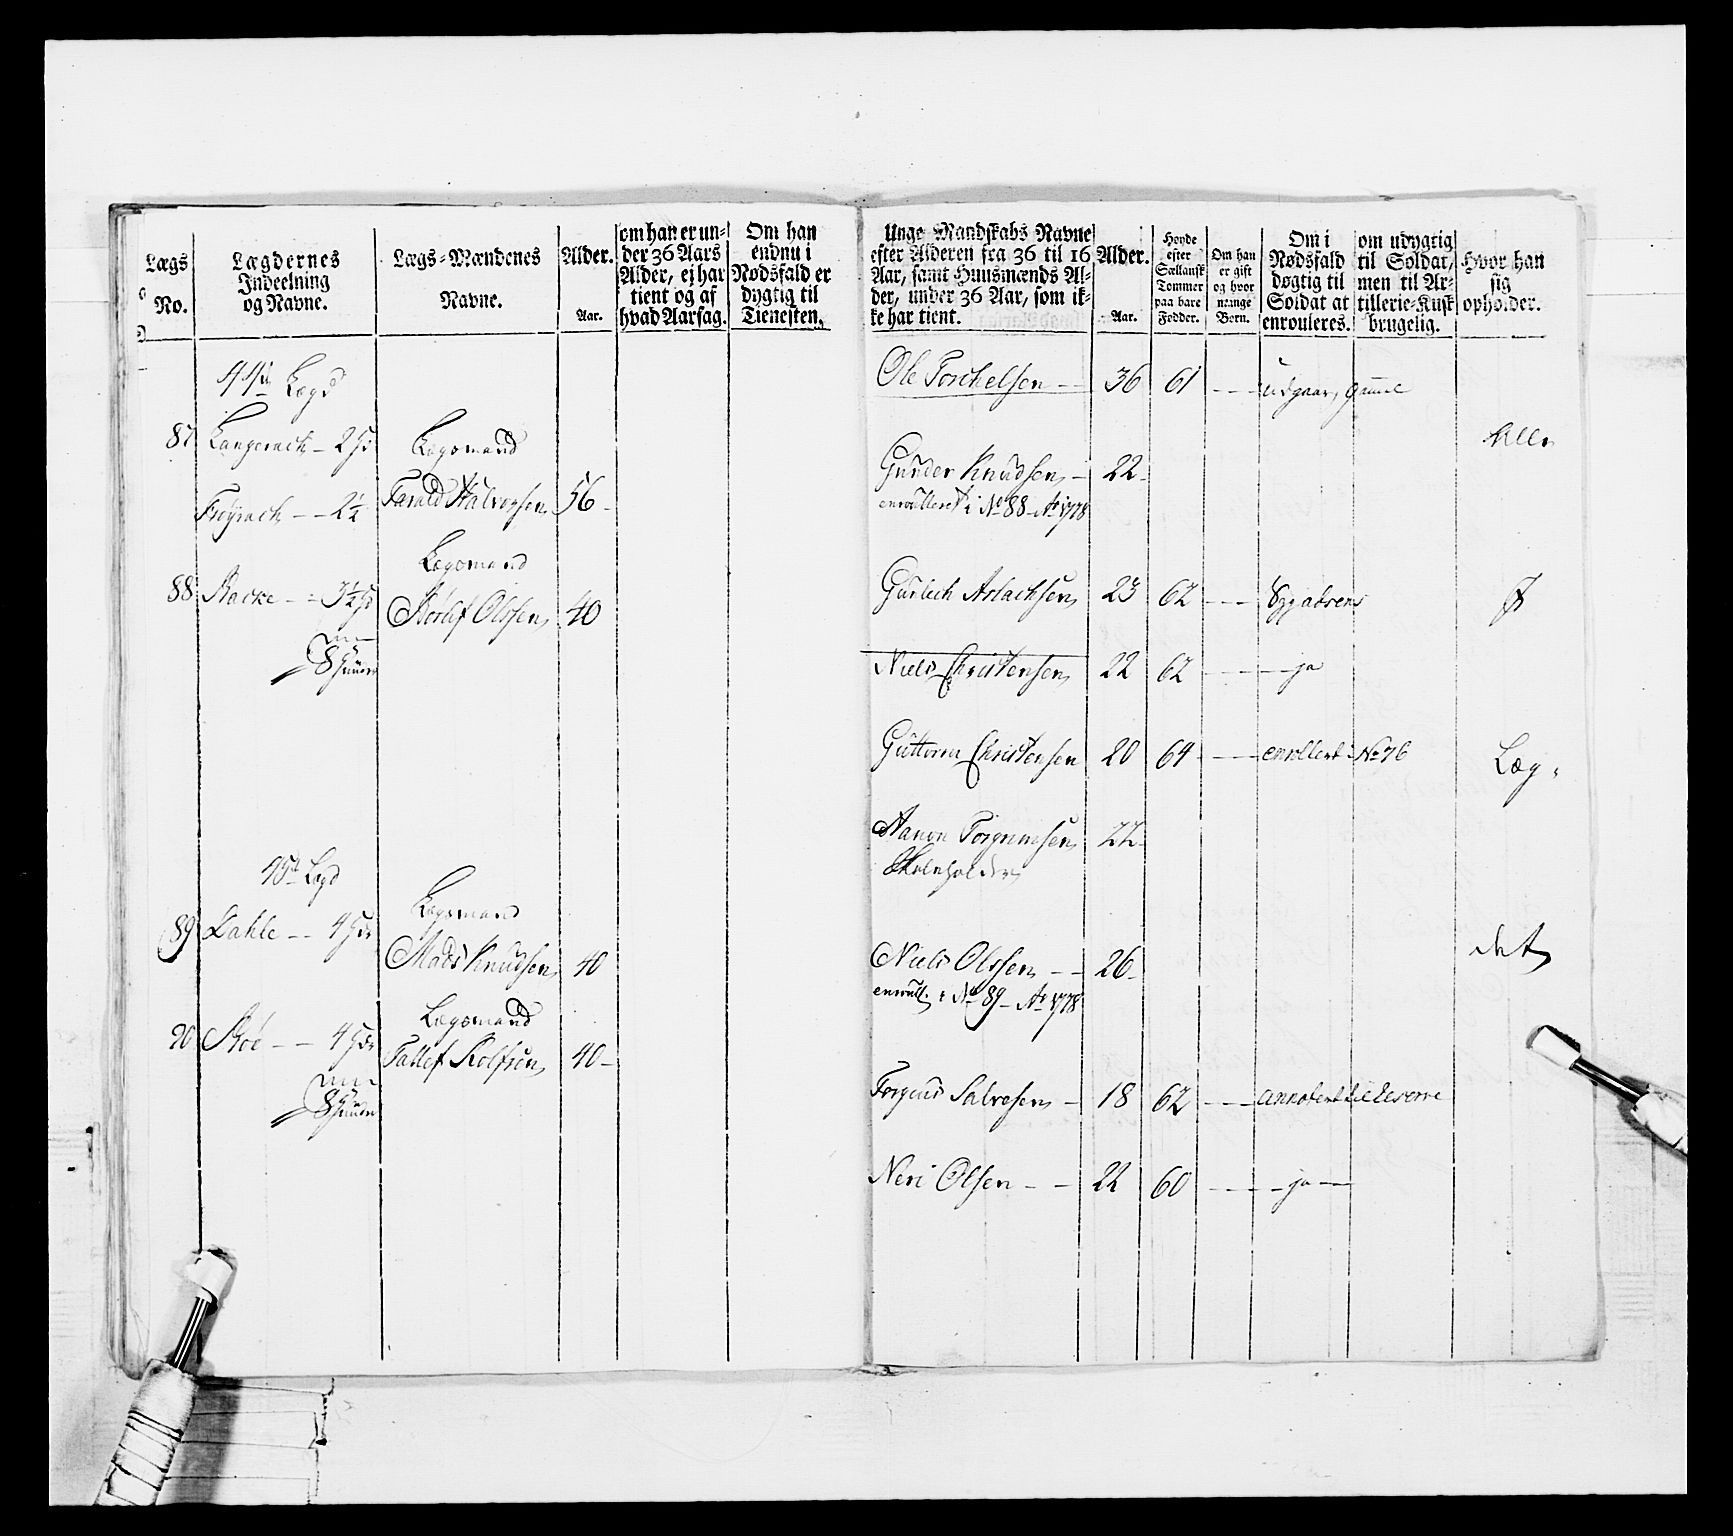 Lægs
No.
Lægdernes
Indeelning
og Navne.
Lægs-Mændenes
Navne.
Alder.
Aar.
om han er un-
der 36 Aars
Alder, ej har
tient og af
hvad Aarsag.
Om han
endnu i
Nødsfald er
dygtig til
Tienesten.
44de Lægd
87 Langerack - 2
Lægsmand
Frøyrack - - 2½
Tarald Halvorsen 56 -
Lægsmand
88 Racke - - 3½
Rørlef Olssen 40
8
45de Lægd
Lægsmand
89 Dahle - - 4
Mads Knudsen 40
Lægsmand
90 Røe - - 4
Tallef Rolfsen 40 -
8
Unge Mandskabs Navne
efter Alderen fra 36 til 16
Aar, samt Huusmænds Al-
der, under 36 Aar, som ik-
ke har tient.
Alder.
Aar.
Høyde
efter
Siællansk
Tommer
paa bare
Fødder.
Om han
er gift
og hvor
mange
Børn.
Om i
Nødsfald
dygtig til
Soldat at
enrouleres.
om udygtig
til Soldat,
men til Ar-
tillerie-Kusk
brugelig.
Hvor han
sig
opholder.
Ole Torchelsen - - 36 61 - - - udgaar, gammel
Alle
Gunder Knudsen - 22 -
enroulleret i No 88 - Ao 1778
Gunlech Aslachsen 23 62 - - -
Niels Christensen 22 62 - - - ja
Guttorm Christensen 20 64 - - - enrollert i No 76
Læg
Aanon Torgrimsen 22 -
Skoleholder
Niels Olssen - - 26 -
enroull. i No 89 - Ao 1778
det
Torgius Salvesen - 18 62 - - - annotert til Reserve
Neri Olsen - - 22 60 - - - ja -